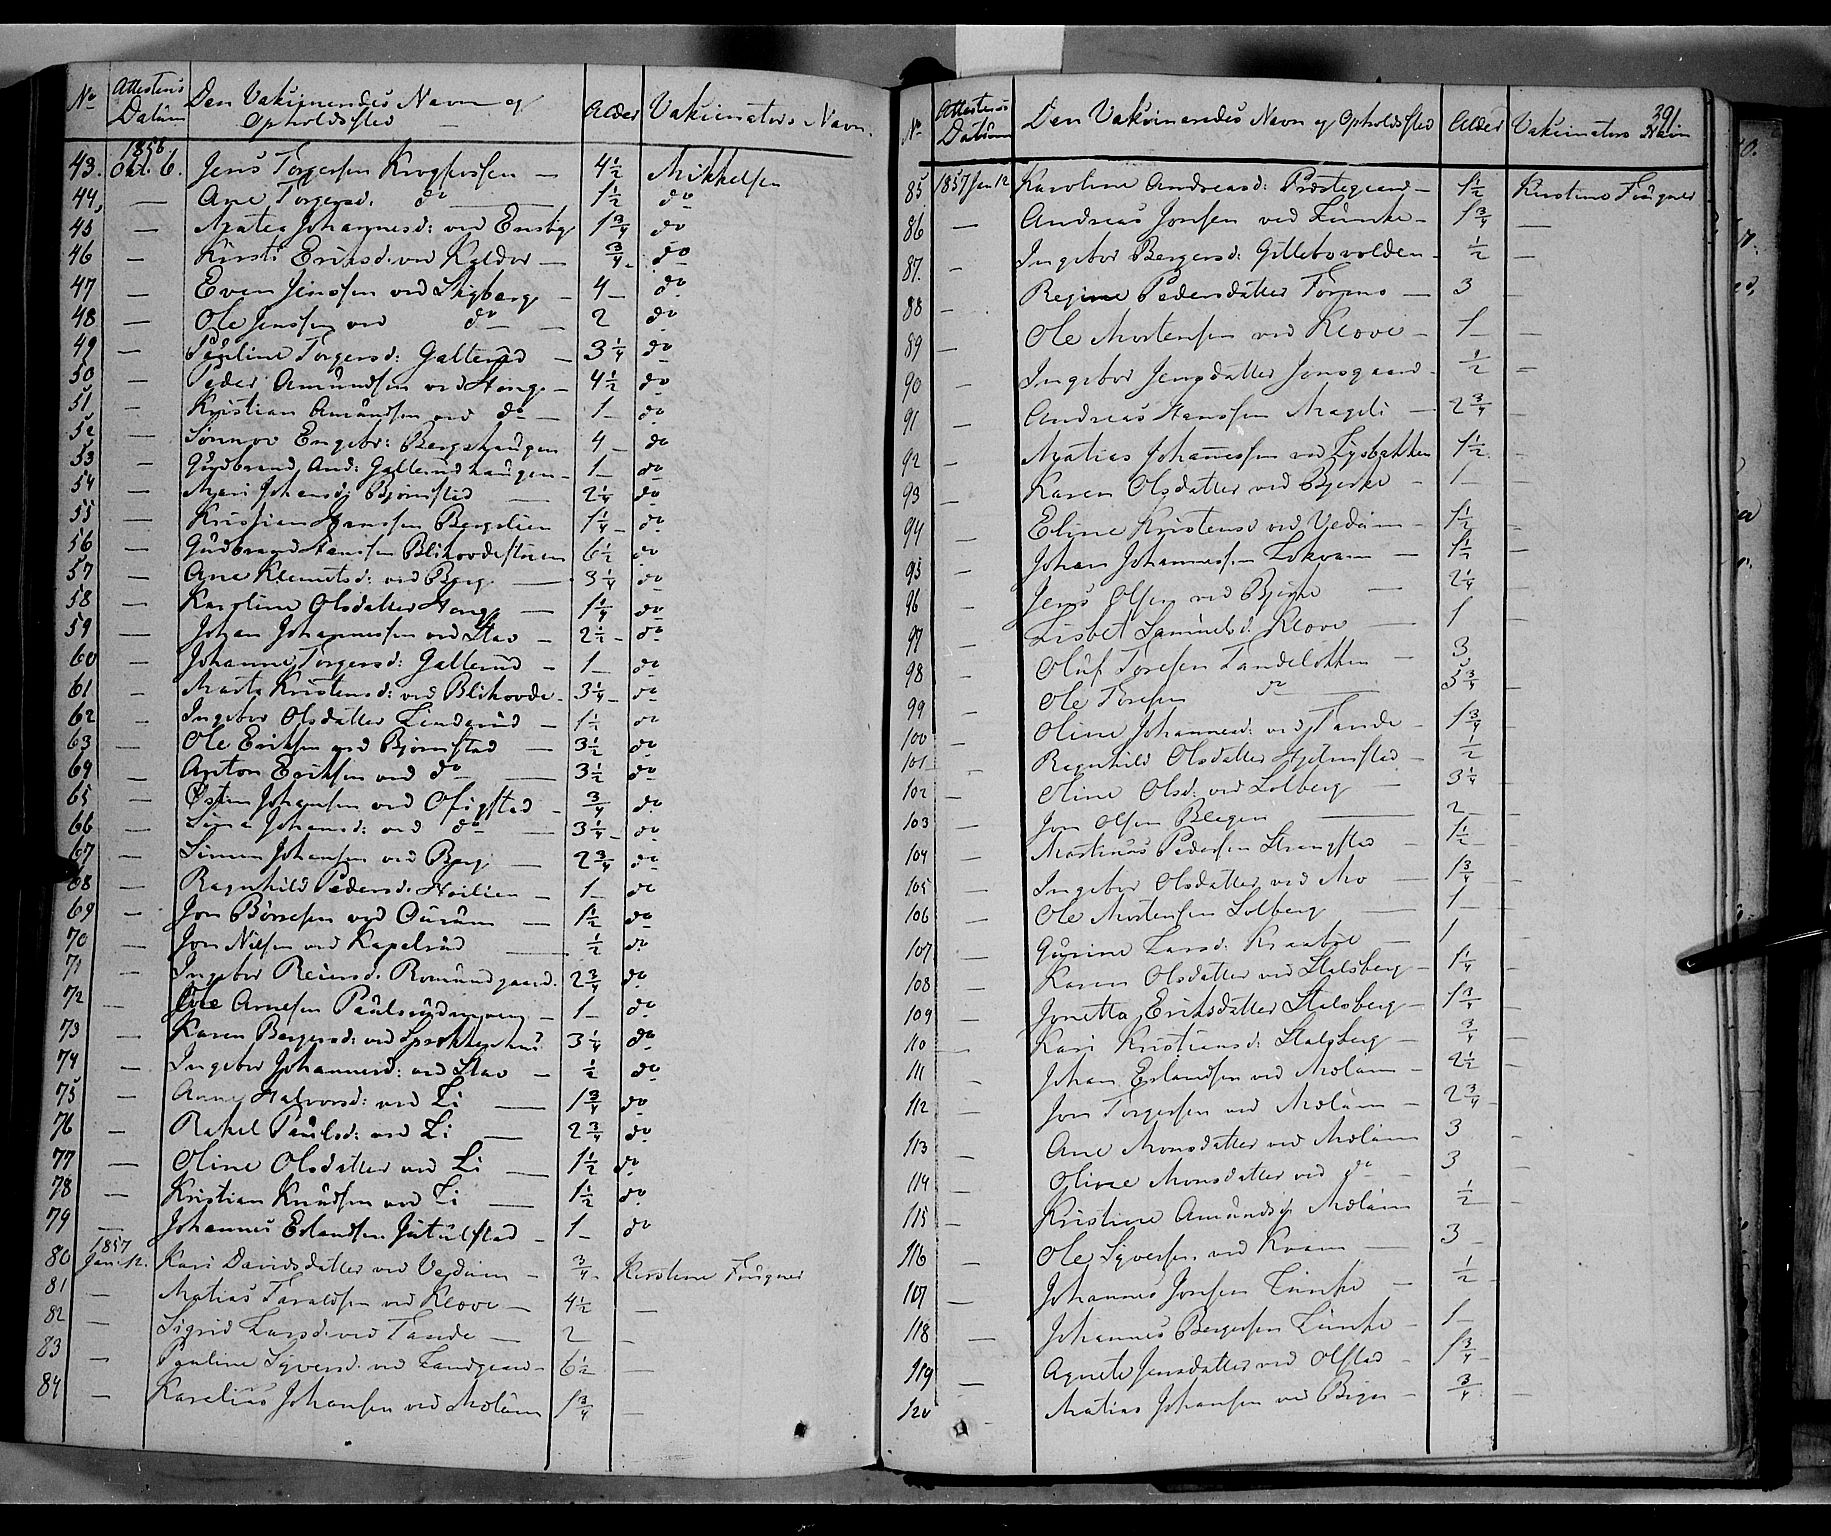 No Attestens Datum Den Vaksineredes Navn og Opholdssted Alder Vaksinators Navn.
1856
43. Okt. 6. Jens Torgersen — 4½ Mikkelsen
44, — Ane Torgersd: do — 1½ do
45 — Agatea Johannesd: ved 1¾ do
46 — Kirsti Eriksd. ved Kjelder — ¾ - do
47 — Even Jenssen ved Stigberg - 4 — do
48 — Ole Jenssen ved do — 2 do
49 — Pauline Torgersd: Gallerud — 3¼ do
50 — Peder Amundsen ved Haug - 4½ do
51 - Kristian Amundsen ved do — 1 — do
52 — Sønnov Engebr: Bergshaugen 4 — do
53 — Gudbrand And: Gallerudhaugen - 1 — do
54 — Mari Johansd: Bjørnstad — 2¼ do
55 — Kristian Hanssen Bergelien 1¼ - do
56 — Gudbrand Hanssen Blikovdestuen 6½ do
57 — Ane Klemetsd: ved Berg — 3¼ do
58 — Karoline Olsdatter Haug — 1¼ do
59 — Johan Johannessen ved Stav - 2½ - do
60 — Johanne Torgersd: Gallerud - 1 — do
61 — Marta Kristensd: ved Blikovde - 3¼ - do
62 — Ingebor Olsdatter Linderud - 1½ do
63 — Ole Eriksen ved Bjørnstad — 3½ do
64 — Anton Eriksen ved do — 3½ do
65 — Østen Johansen ved Ofigstad - ¾ do
66 — Johansd: ved do — 3¼ - do
67 — Simen Johansen ved Berg — 2¾ do
68 — Ragnhild Pedersd. Hoilien — 1 — do
69 — Jon Børresen ved Aurum — 1½ do
70 — Jon Nilsen ved Kapelrud — ½ do
71 — Ingebor Reiersd. Romundgaard. 2¾ do
72 — Ole Arnesen Paulsrudengen - 1 — do
73 — Karen Bergersd: ved 3¼ do
74 — Ingebor Johannesd: ved Stav — ½ do
75 — Anne Halvorsd: ved Li — 1¾ do
76 — Rakel Paulsd: ved Li — 2¾ do
77 — Oline Olsdatter ved Li — 1½ do
78 — Kristian Knudsen ved Li — 1½ do
79 — Johannes Erlandsen Jutulstad - 1 — do
1857
80 Jan. 12. Kari Davidsdatter ved Vedum — ¾ - Kirstine Fougner
81 — Matias Taraldsen ved Klove — 4½ —
82 — Sigrid Larsd. ved Tande — 2 —
83 — Pauline Syversd. ved Landgaard — 6½ —
84 — Karelius Johansen ved Mælum 1¾ —
No Attestens Datum Den Vaksineredes Navn og Opholdssted Alder Vaksinators Navn 391
85 1857 Jan 12 Karoline Andreasd: Præstegaard — 1½ Kirstine Fougner
86 — Andreas Jonsen ved Lunke — 1¾ —
87. — Ingebor Bergersd: Gillebovolden - ½ —
88 — Regine Pedersdatter Formo — 3 -
89 — Ole Mortensen ved Klove — 1 — —
90 — Ingebor Jensdatter Jonsgaard - ½ —
91 — Andreas Hanssen Mageli — 2¾ —
92 — Matias Johannessen ved Lysbakken 1½ —
93 — Karen Olsdatter ved Bjerke — 1 — —
94 — Eline Kristensd ved Vedum — 1½ —
95 — Johan Johannessen Lokvam — 1½ —
96 — Jens Olsen ved Bjerke — 2¼ —
97 — Lisbet Samuelsd: Klove — 1 —
98 — Oluf Toresen Tandeløkken — 3
99 — Ole Toresen do — 5¾ —
100 — Oline Johannesd: ved Tande — 1¾ —
101 — Ragnhild Olsdatter Hjelmstad — ½ —
102 — Oline Olsd: ved Solberg — 3¼ —
103 — Jon Olsen Blegen — 2 — —
104 — Martinus Pedersen Strangstad — 1½ —
105 — Ingebor Olsdatter ved Mo — 1¾ —
106 — Ole Mortensen Solberg — 1 — —
107 — Gurine Larsd: Kraabøl — 1 —
108 — Karen Olsdatter ved Stalsberg — 1¼ —
109 — Jonetta Eriksdatter Stalsberg —
110 — Kari Kristiansd: Stalsberg — ¾ —
111 — Johan Erlandsen ved Mælum — 2½ —
112 — Jon Torgersen ved Mælum — 2¾ —
113 — Ane Monsdatter ved Mælum 3 -
114 — Oline Monsdatter ved do — 3 -
115 — Kristine Amundsd: Mælum ½ —
116 — Ole Syversen ved Kvam — 3 -
107 — Johannes Jonsen Lunke — ½ —
118 — Johannes Bergersen Lunke — 1 —
119 — Agnete Jensdatter ved Olstad — 1¾ —
120 — Matias Johansen ved — ¾ —